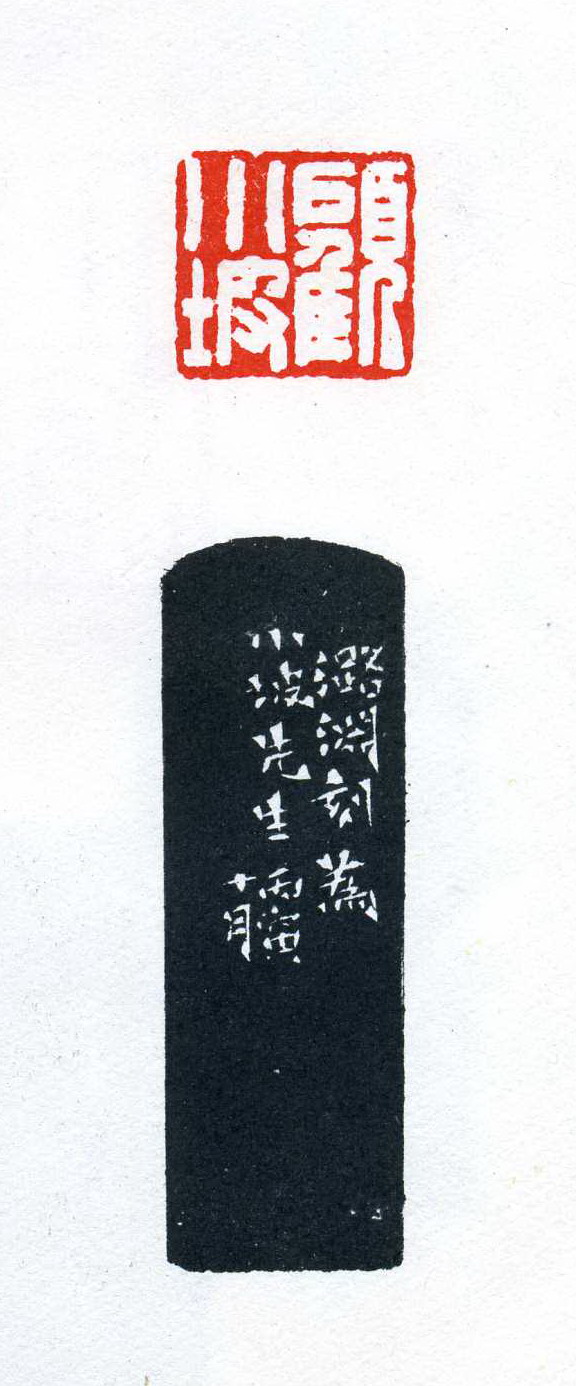 顧
小坡
潞淵刻為
小坡先生丙寅
十月